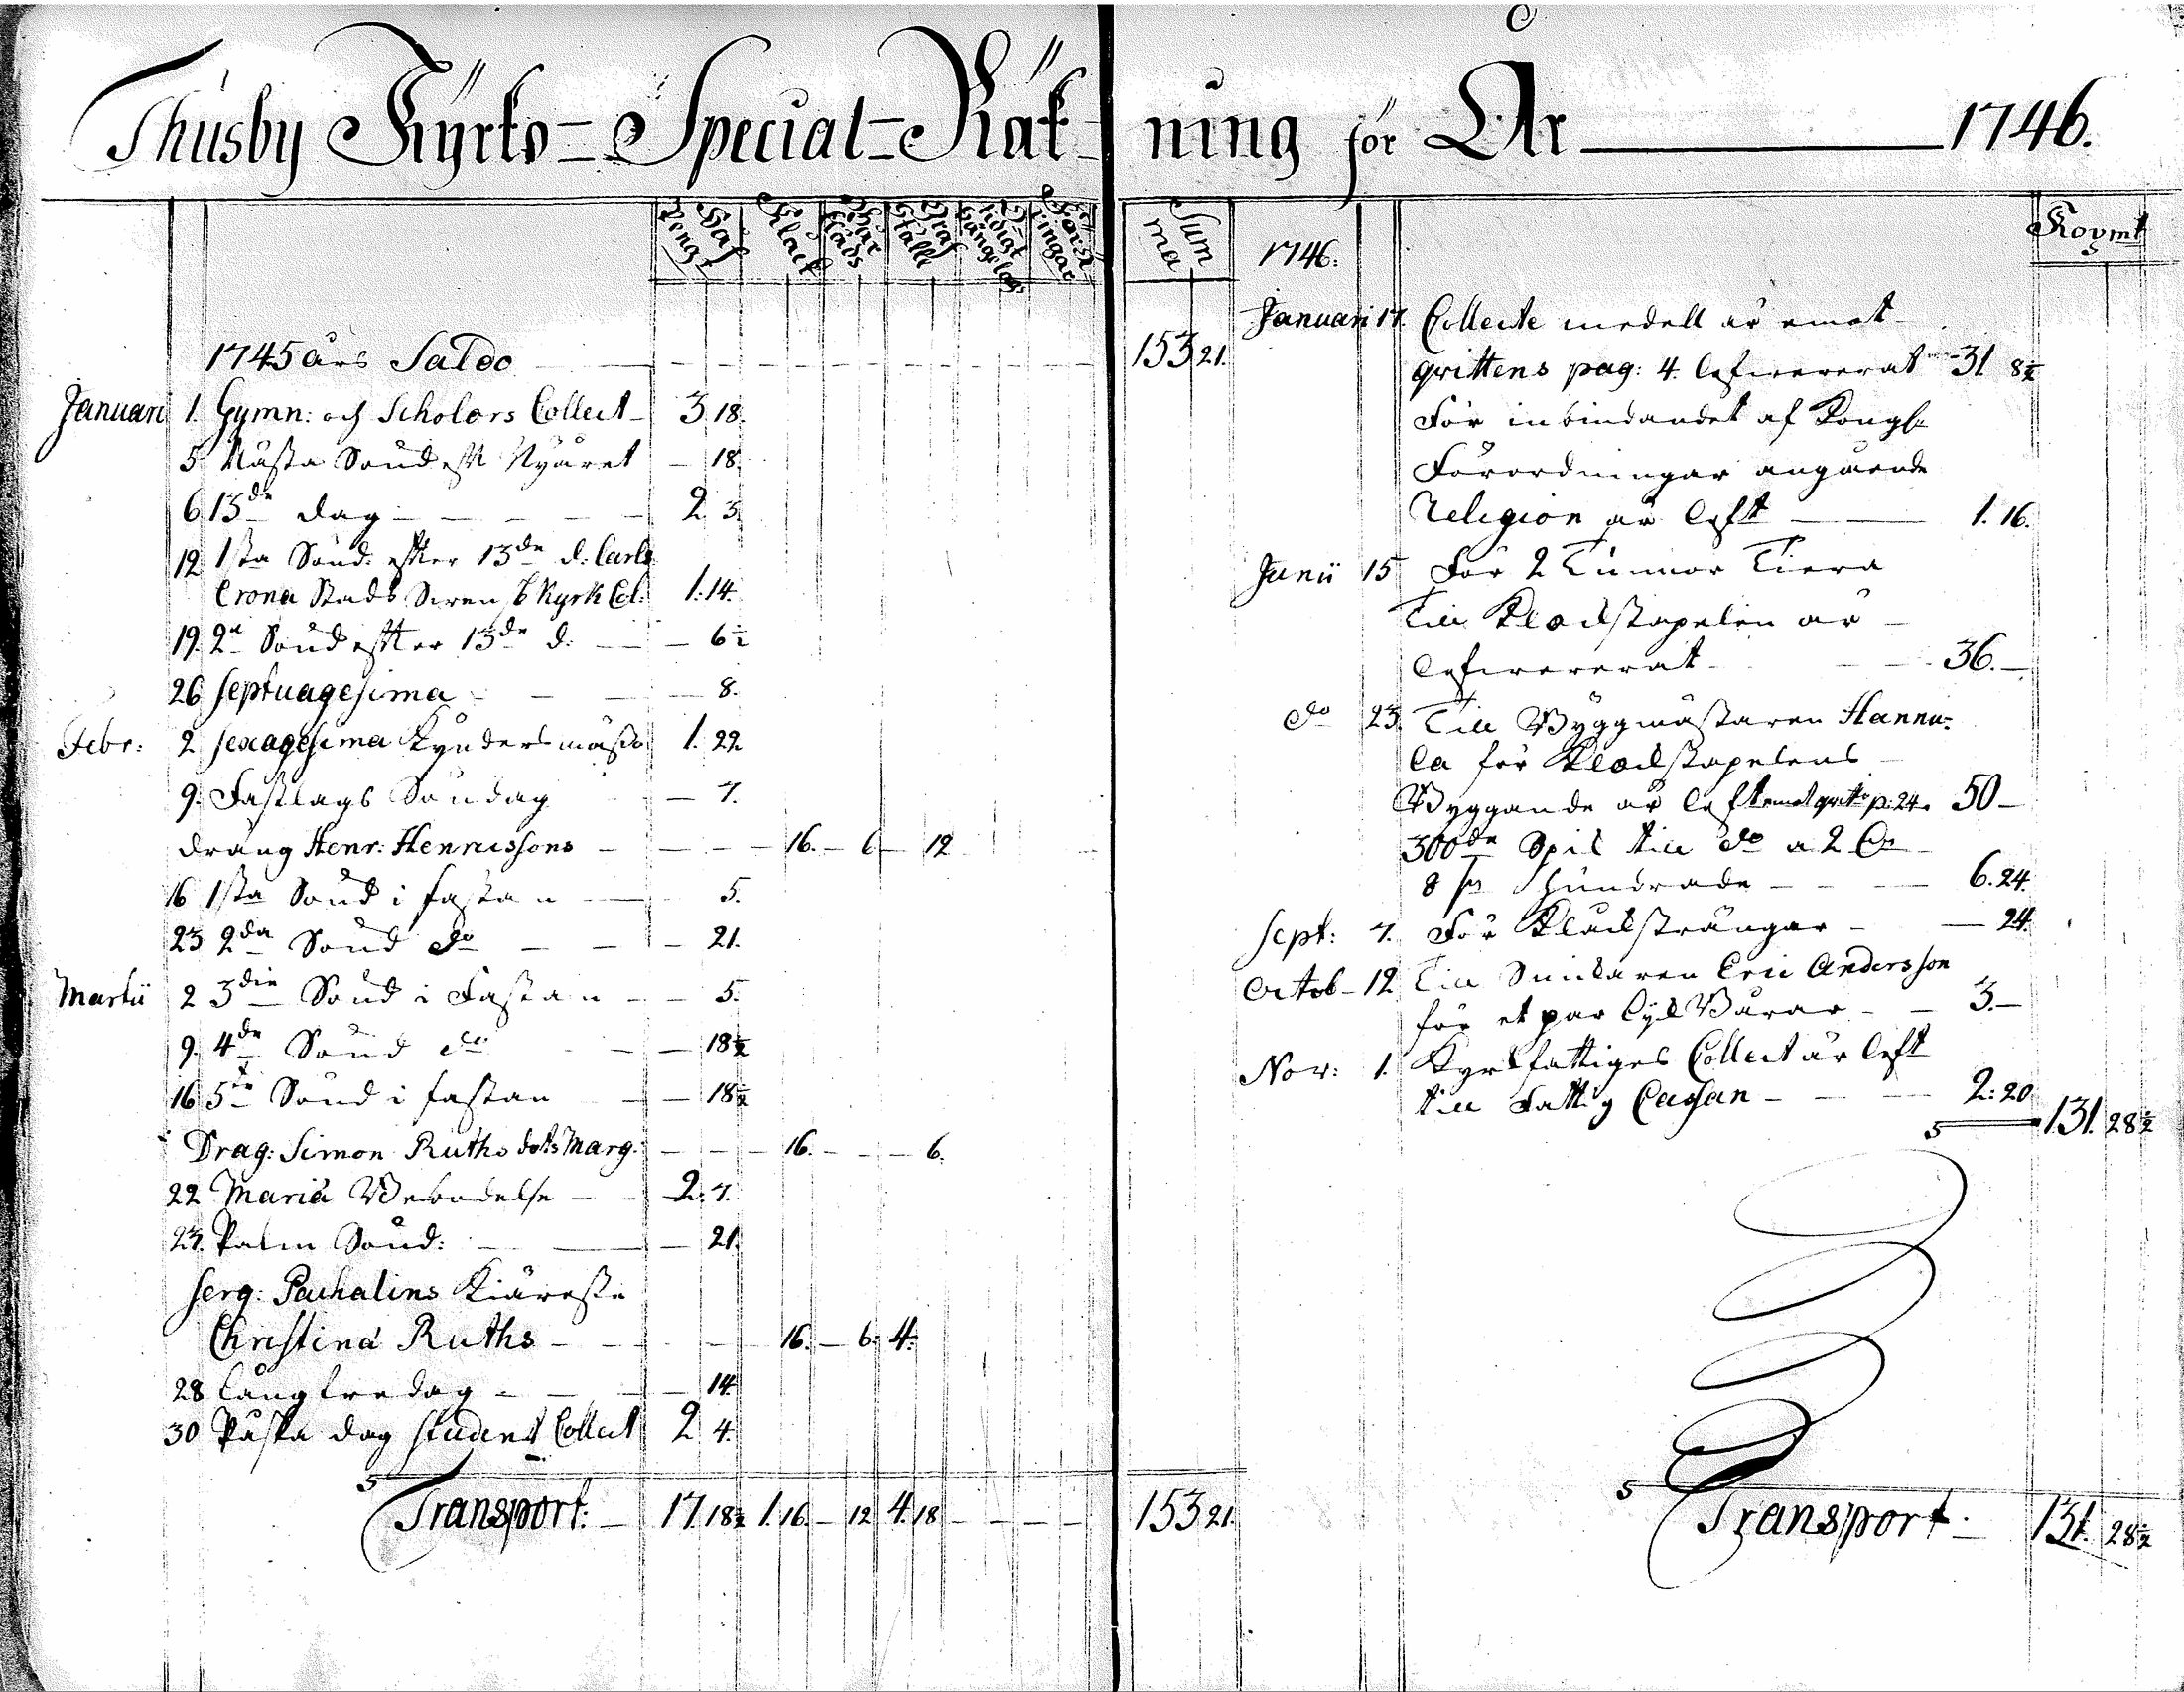 Thusby Kyrko-Special-Räk-ning för År 1746.
Håf Peng:r
Klåck
Bår Kläds
Graf Ställe
Summa
1745 års Saldo 153 21.
Januari 1. Gymn: och Scholors Collect 3 18.
5. Nästa Sönd eft Nyåret 18.
6. 13de dag 2. 3.
12 1sta Sönd: efter 13de d: Carls
Crona Stads Kyrk Col: 1. 14.
19. 2a Sönd efter 13de d: 6½
26 Septuagesima 8.
Febr: 2 Sexagesima Kyndersmässo 1. 22
9. Fastlags Söndag 7.
dräng Henr: Henricssons 16. 6 12
16 1sta Sönd i fastan 5.
23 2da Sönd do 21.
Martii 2 3die Sönd i Fastan 5.
9. 4de Sönd do 18½
16 5te Sönd i fastan 18½
Drag: Simon Ruths dotts Marg: 16. 6.
22 Mariä Bebodelse 2. 7.
23. Palm Sönd: 21.
Serg: Pachalins Kiäreste
Christina Ruths 16. 6. 4.
28 Långfredag 14.
30 Påska dag Student Collect 2 4.
Transport: 17. 18½ 1. 16. 12 4. 18 153 21.
1746.
Kopmt
Januari 17. Collecte medell är emot
qvittens pag: 4. lefwererat 31. 8½
För inbindandet af Kongl:
Förordningar angående
Religion är left 1. 16.
Junii 15 För 2 Tunnor Tiera
Till Klockstapelen är
lefwererat 36.
do 23. Till Byggmästaren Hannu-
la för Klockstapelens
Byggande är left emot qvitto p: 24. 50
300de Spik till do a 2
8 hundrade 6. 24.
Sept: 7. För Klåcksträngar 24.
Octob 12 Till Smidaren Eric Andersson
för et par 3.
Nov: 1. Kyrkfattiges Collect är left
till Fattig Cassan 2: 20
131. 28½
Transport. 131. 28½